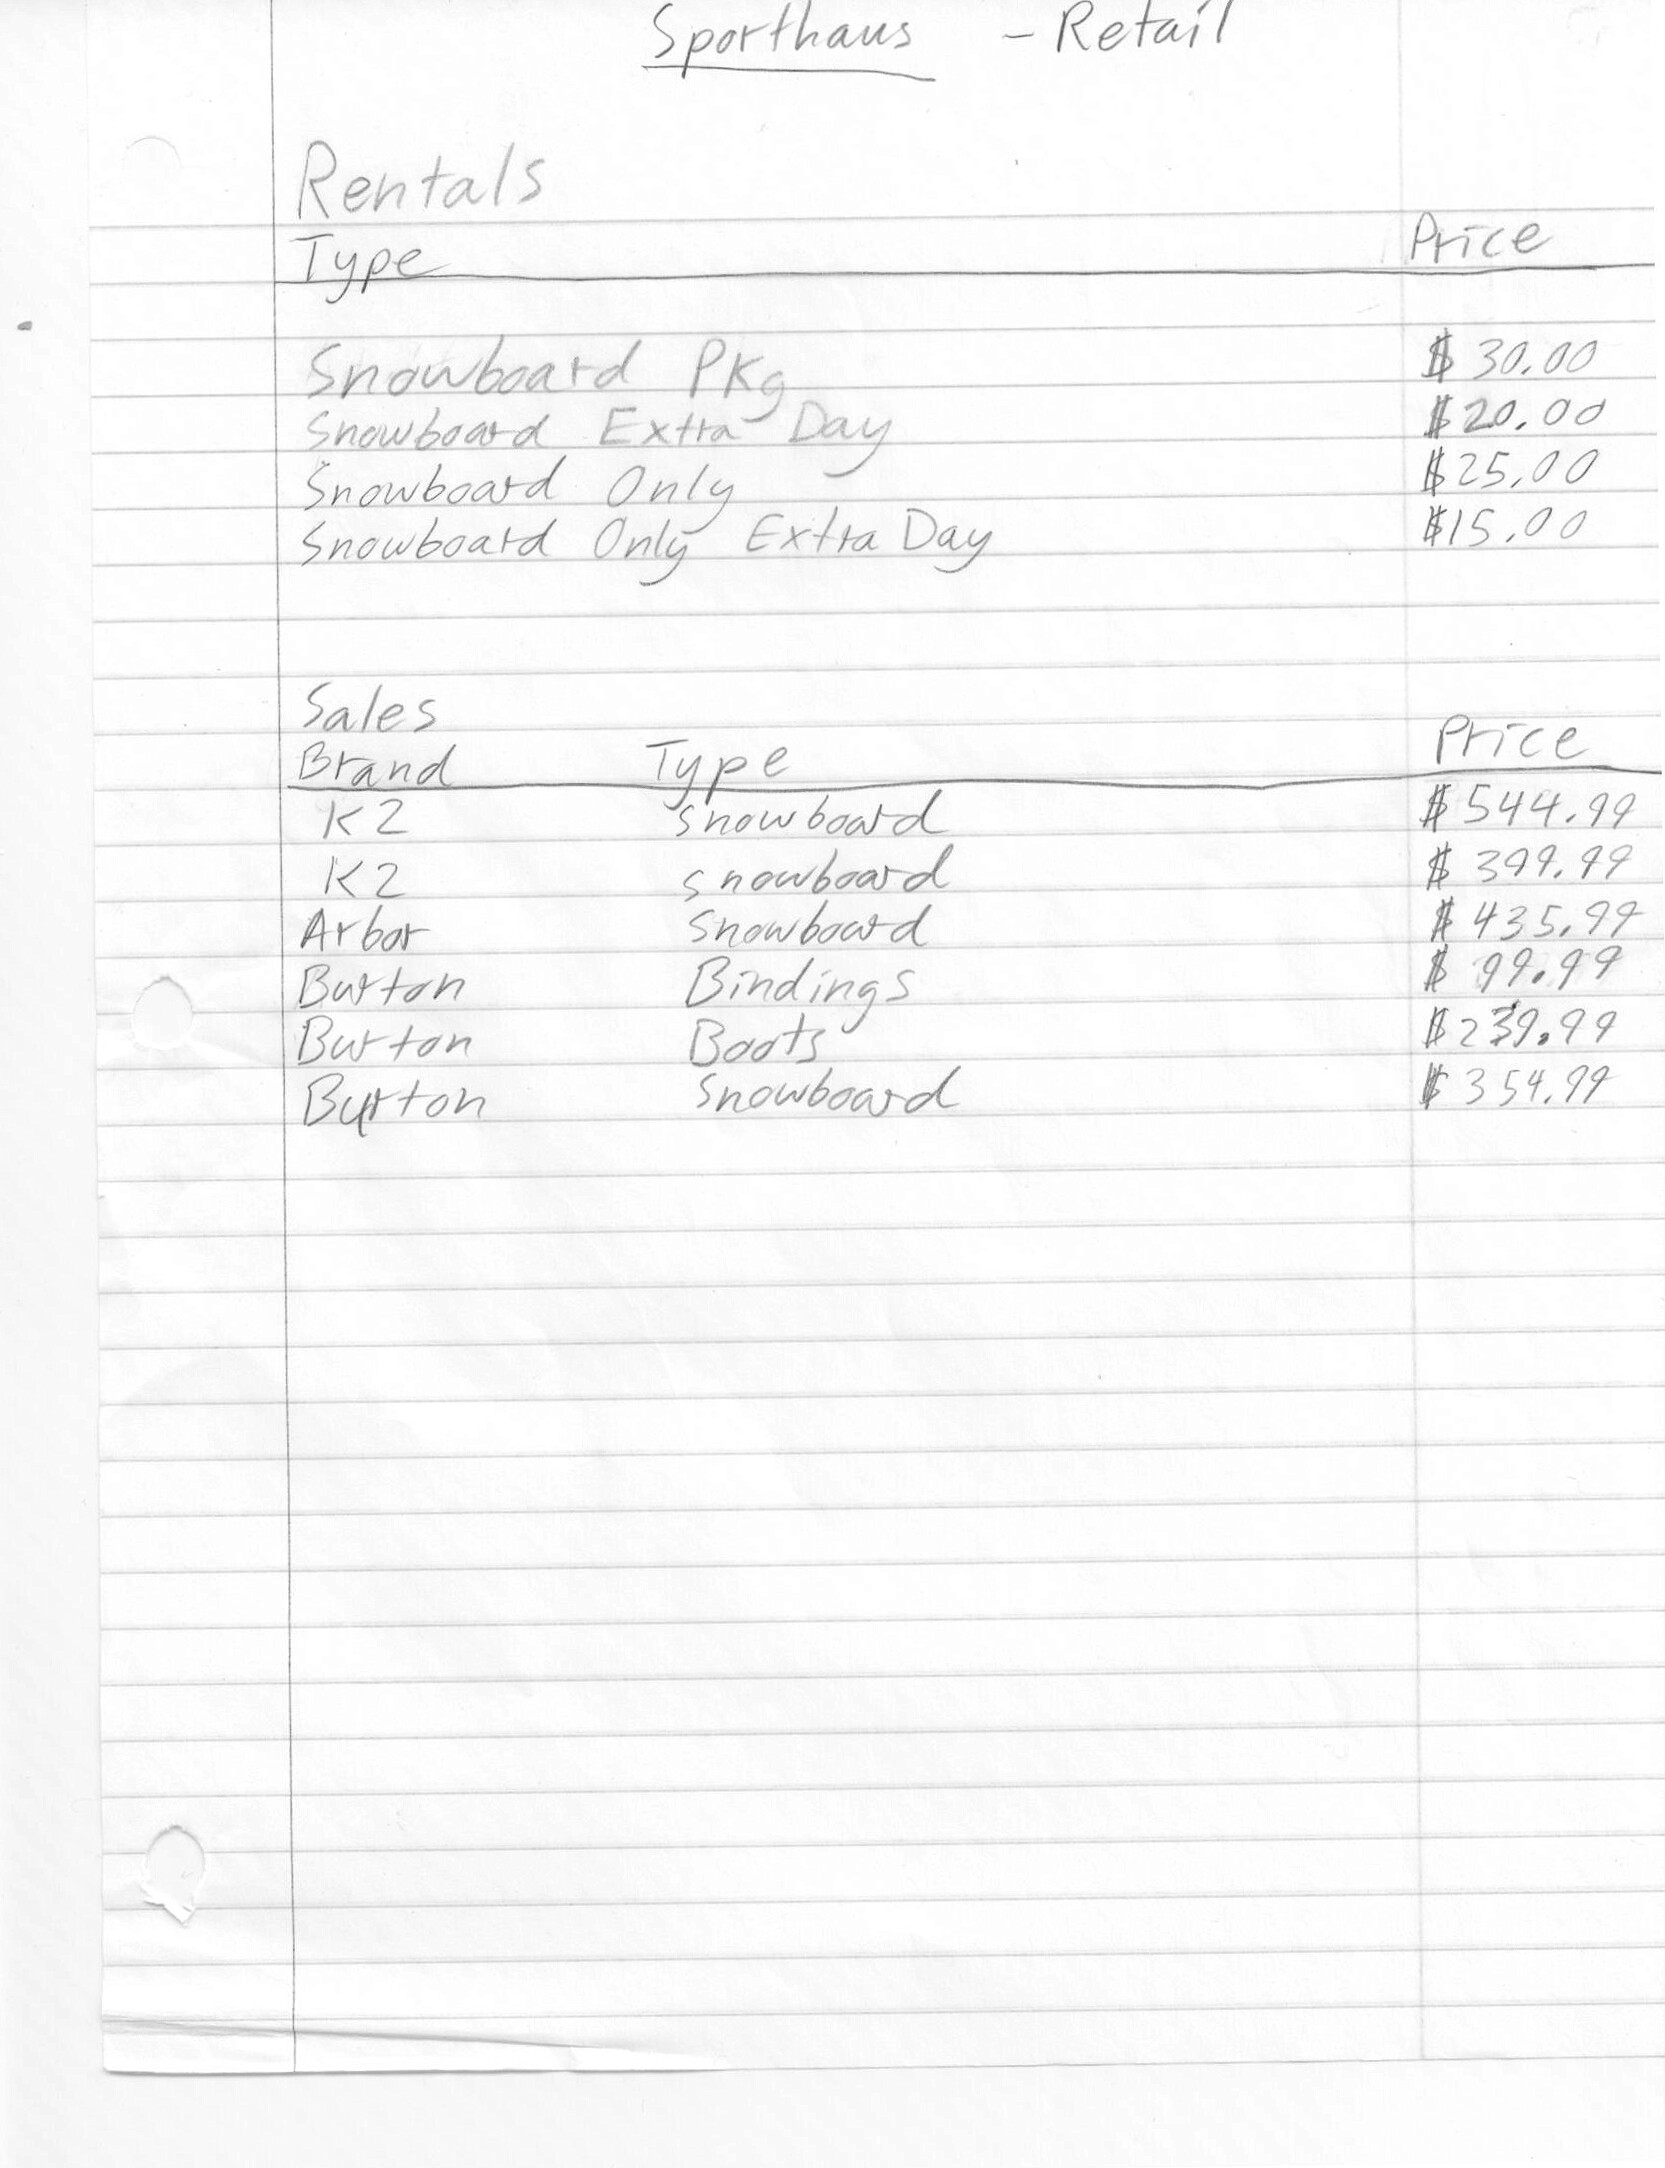 Sporthaus - Retail
Rentals
Type Price
Snowboard Pkg $30.00
Snowboard Extra Day $20.00
Snowboard Only $25.00
Snowboard Only Extra Day $15.00
Sales
Brand Type Price
K2 Snowboard $544.99
K2 snowboard $399.99
Arbor Snowboard $435.99
Burton Bindings $99.99
Burton Boots $239.99
Burton Snowboard $354.99